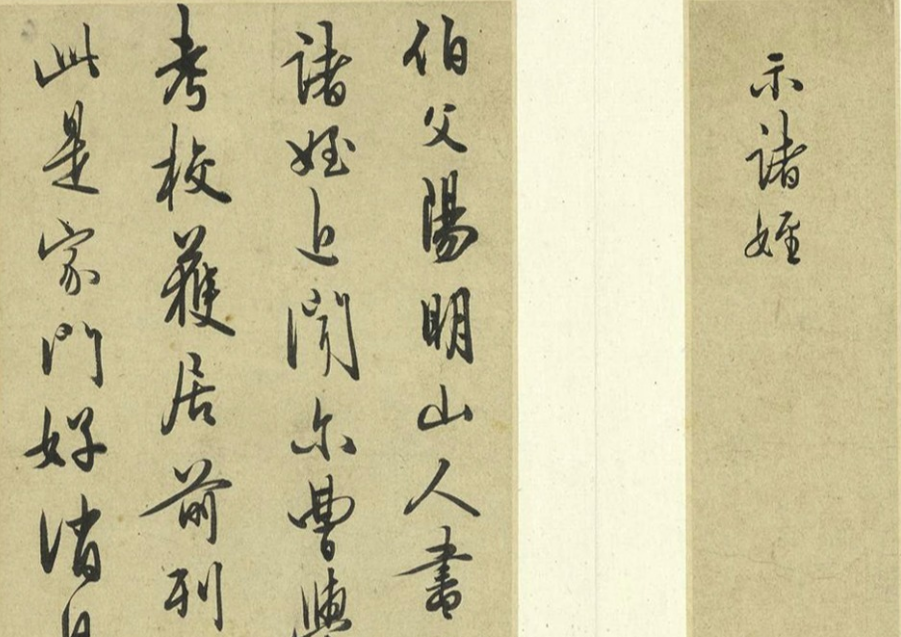 示諸姪
伯父陽明山人書
諸姪近聞尔曹
考校獲居前列
此是家門好消